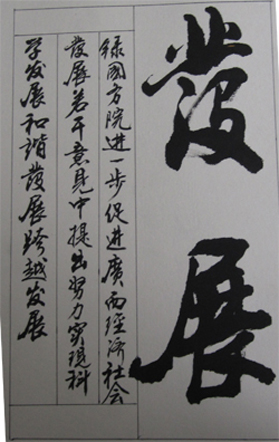 發展
録國方院進一步促進廣西經濟社会
發展若干意見中提出努力实現科
学发展和谐發展跨越发展